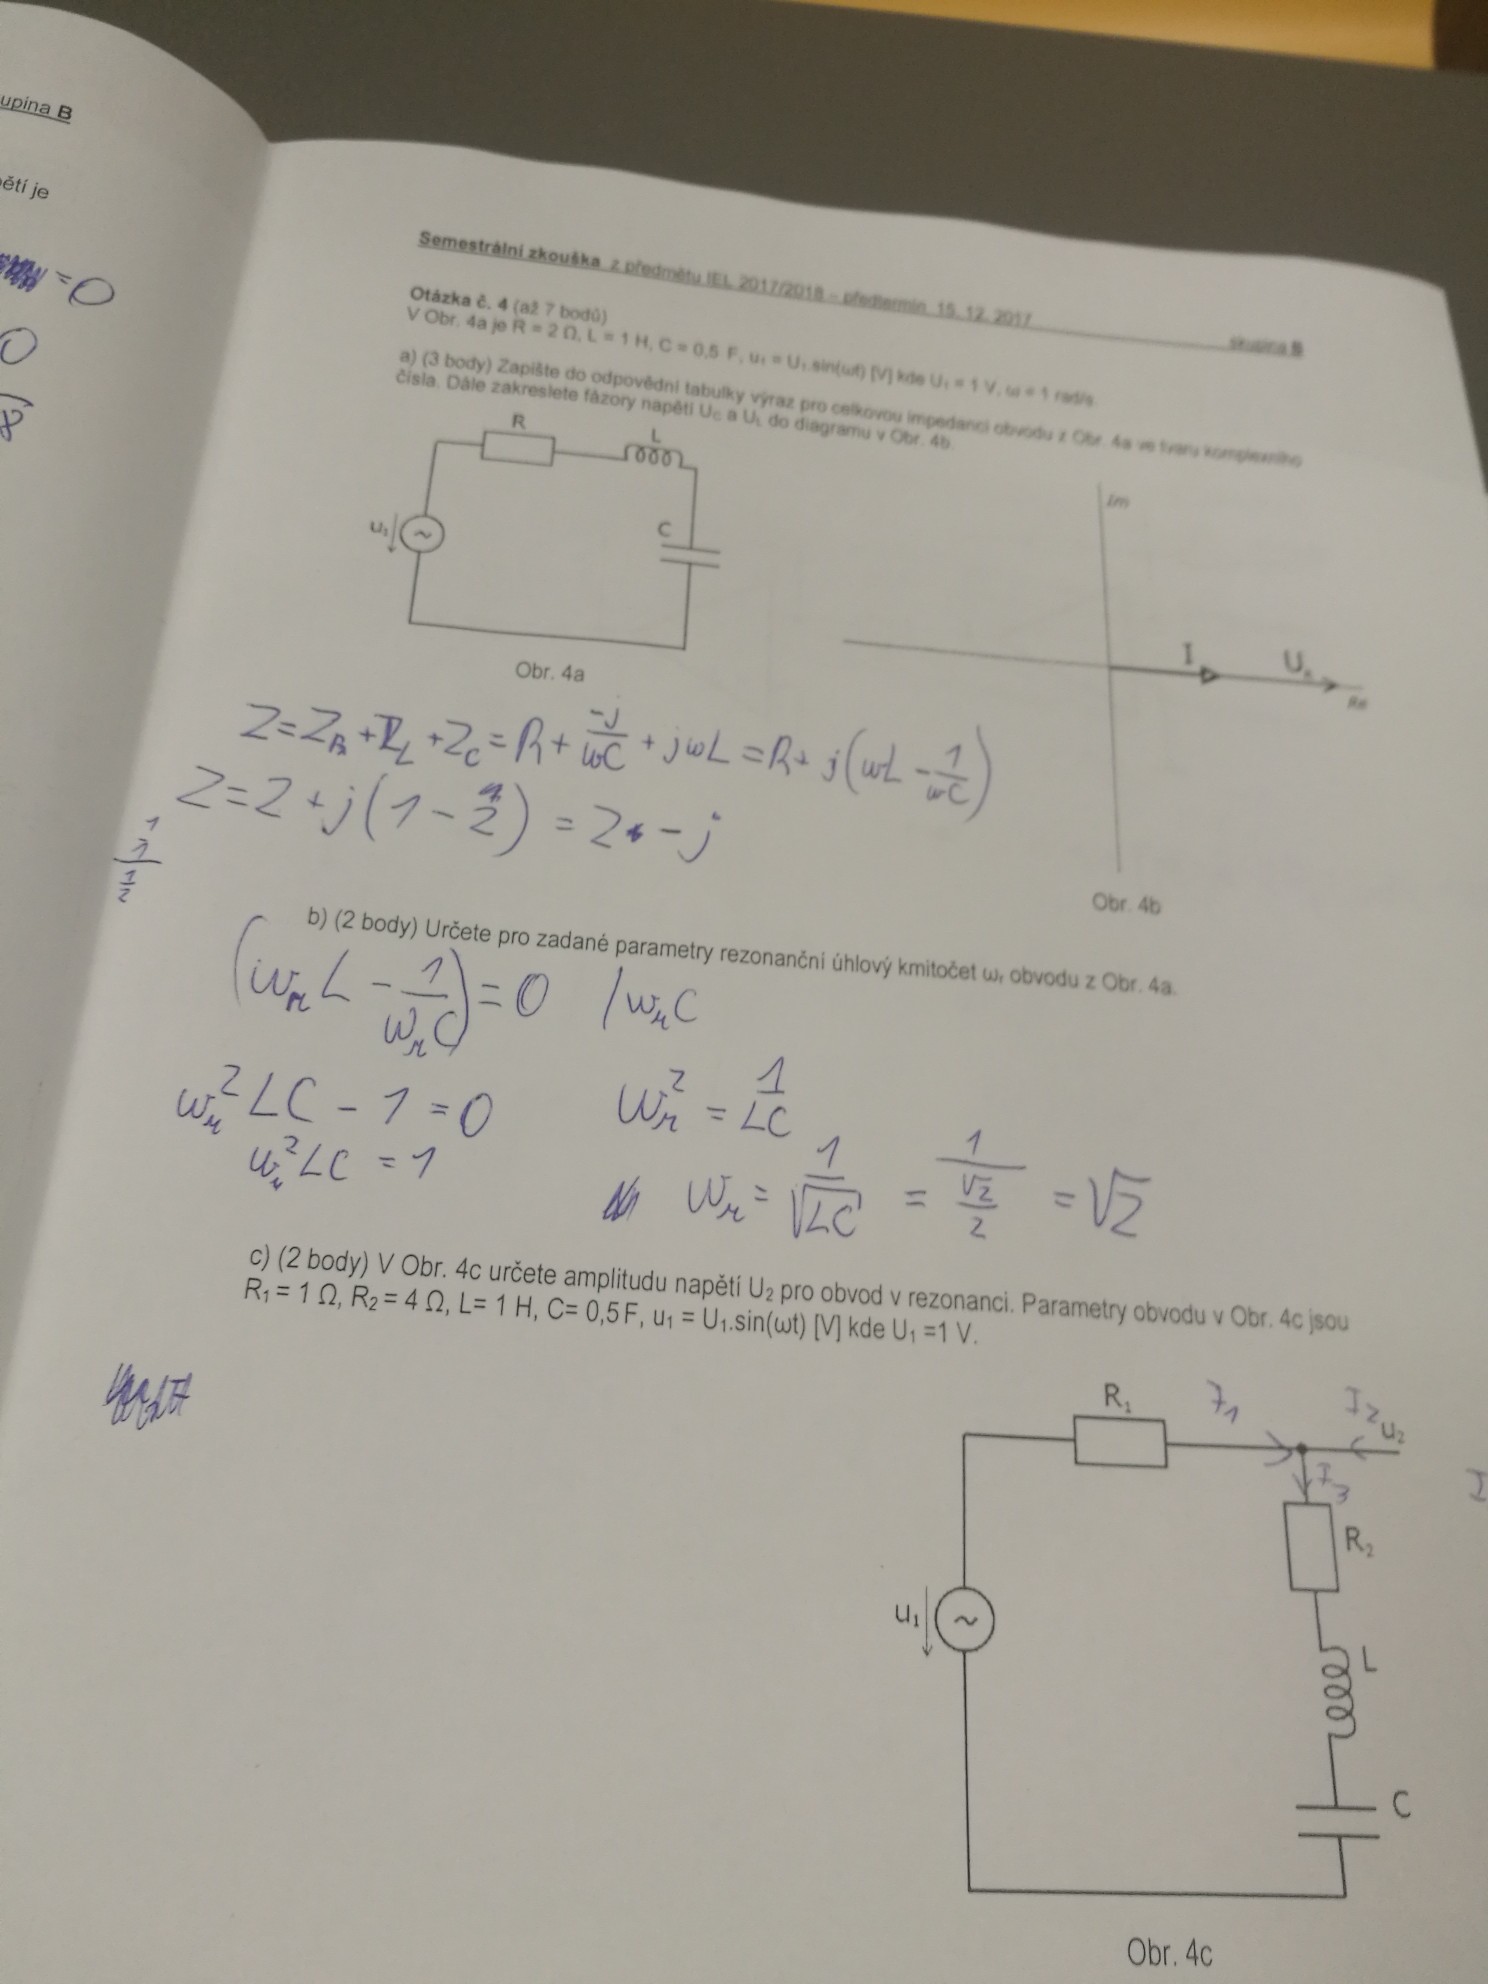 upina B
ětí je
=0
0
8
Semestrální zkouška z předmětu IEL 2017/2018 – předtermín 15. 12. 2017
skupina B
Otázka č. 4 (až 7 bodů)
V Obr. 4a je R = 2 Ω, L = 1 H, C = 0,5 F, u₁ = U₁.sin(ωt) [V] kde U₁ = 1 V, ω = 1 rad/s.
a) (3 body) Zapište do odpovědní tabulky výraz pro celkovou impedanci obvodu z Obr. 4a ve tvaru komplexního
čísla. Dále zakreslete fázory napětí U_C a U_L do diagramu v Obr. 4b.
R
L
u₁
~
C
Obr. 4a
Im
I
U
Re
Obr. 4b
Z=Z_R+Z_L+Z_C=R+ -j/ωC + jωL=R+ j(ωL - 1/ωC)
Z=2+j(1-2) = 2 -j
1
1
1/2
b) (2 body) Určete pro zadané parametry rezonanční úhlový kmitočet ωᵣ obvodu z Obr. 4a.
(ωᵣL - 1/ωᵣC)=0 /ωᵣC
ωᵣ²LC - 1 =0
ωᵣ² = 1/LC
ωᵣ²LC = 1
ωᵣ= 1/√LC = 1/(√2/2) = √2
c) (2 body) V Obr. 4c určete amplitudu napětí U₂ pro obvod v rezonanci. Parametry obvodu v Obr. 4c jsou
R₁ = 1 Ω, R₂ = 4 Ω, L= 1 H, C= 0,5 F, u₁ = U₁.sin(ωt) [V] kde U₁ =1 V.
R₁
I₁
I₂
u₂
I₃
I
R₂
u₁
~
L
C
Obr. 4c